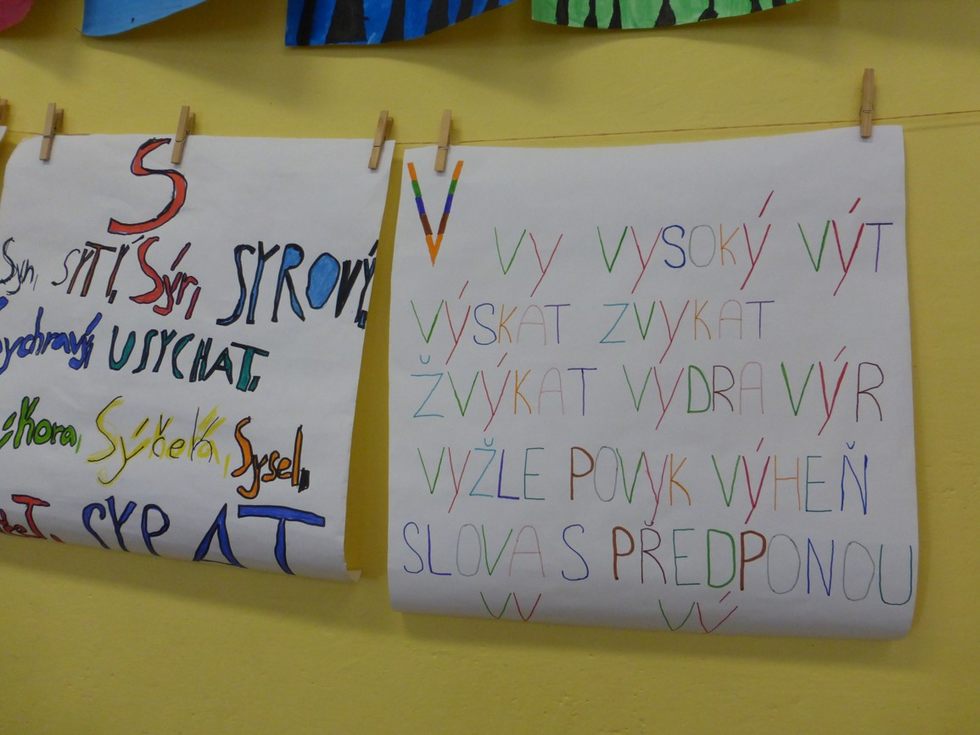 S
Syn, SYTÍ, Sýr, SYROVÝ,
sychravý USYCHAT,
sýkora, Sýček, Sysel,
SYPAT
V
VY VYSOKÝ VÝT
VÝSKAT ZVYKAT
ŽVÝKAT VYDRA VÝR
VYŽLE POVYK VÝHEŇ
SLOVA S PŘEDPONOU
VY VÝ